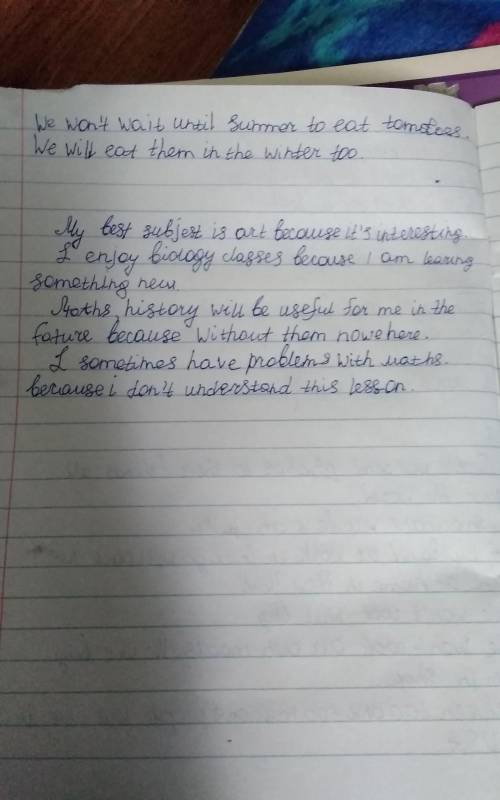 We won't wait until summer to eat tomatoes.
We will eat them in the winter too.
My best subjest is art because it's interesting.
I enjoy biology classes because I am learing
something new.
Maths, history will be useful for me in the
fature because without them nowehere.
I sometimes have problems with maths.
because i don't understand this lesson.